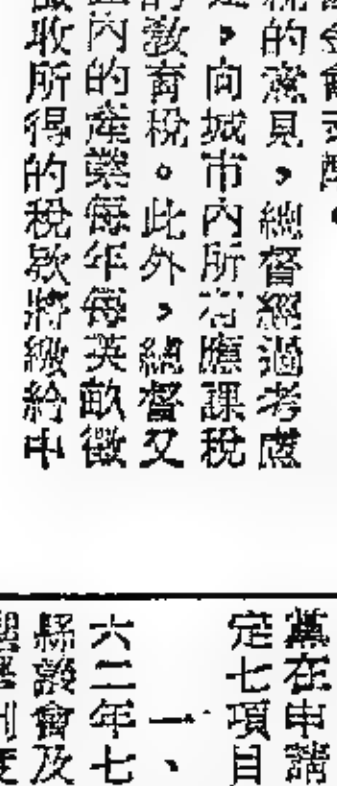 的意見，總督經過考慮
，向城市內所有應課稅
教育稅。此外，總督又
內的產業每年每英畝徵
收所得的稅款將繳給中
黨在申請
定七項目
一、
六二年七
縣議會及